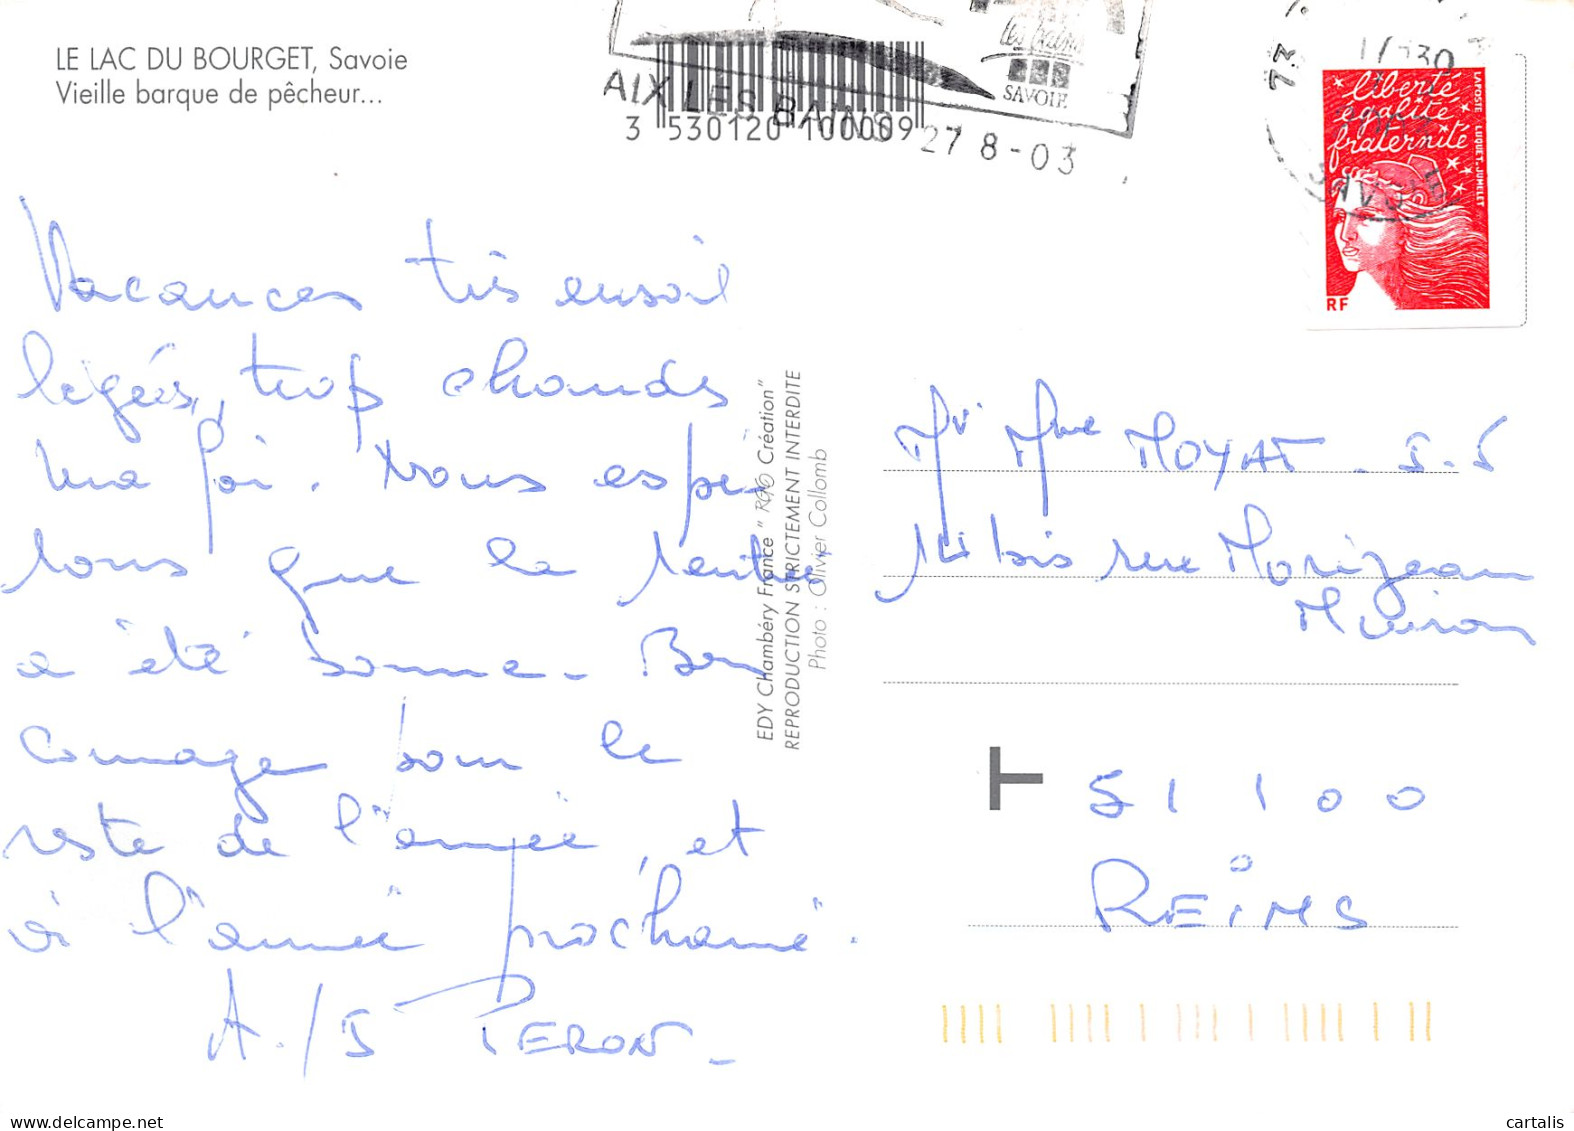 LE LAC DU BOURGET, Savoie
Vieille barque de pêcheur...
les bains
SAVOIE
AIX LES BAINS 27 8-03
3 530120 100009
73
SAVOIE
liberté
égalité
fraternité
LAPOSTE LUQUET-JUMELET
RF
Vacances très ensoil
leigées, trop chaudes
ma foi. Nous espé
rons que la rentrée
a été bonne. Bon
courage pour le
reste de l'année, et
à l'année prochaine.
A./J PERON
EDY Chambéry France " Création"
REPRODUCTION STRICTEMENT INTERDITE
Photo : Olivier Collomb
Mr Mme MOYAT
bis rue
51100
REIMS
cartalis
www.delcampe.net